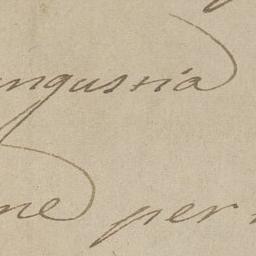 angustia
ne per